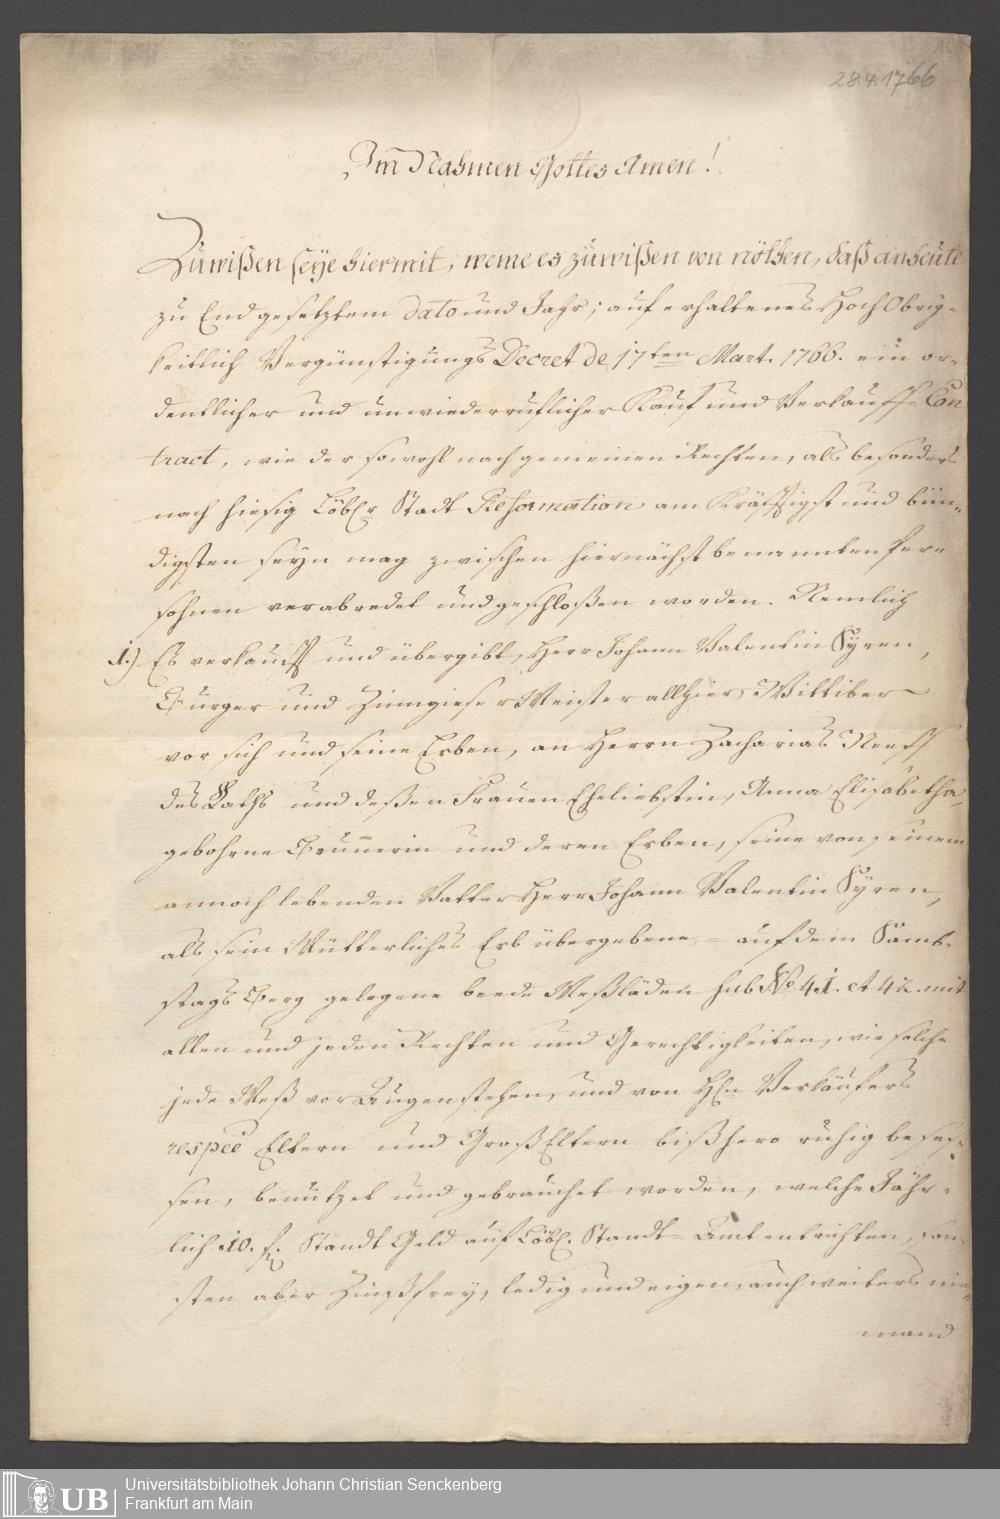 28.4.1766
Im Nahmen Gottes Amen!
Zuwißen seÿe hiermit, weme es zuwißen von nöthen, daß anheute
zu End gesetztem dato und Jahr; auf erhaltenes HochObrig-
keitlich Vergünstigungs Decret de 17ten Mart. 1766. ein or-
dentlicher und unwiederruflicher Kauf und Verkauffs-Con
tract, wie der sowohl nach gemeinen Rechten, als besonders
nach hiesig Löbl. Stadt Reformation am Kräfftigst und bün-
digsten seyn mag zwischen hiernächst benannten Per-
sohnen verabredet und geschloßen worden. Nemlich
1.) Es verkaufft und übergibt, Herr Johann Valentin Kÿren,
Burger und Zinngieser Meister allhier, Wittiber
vor sich und seine Erben, an Herrn Zacharias Neeff
des Raths und deßen Frauen Eheliebstin, Anna Elisabetha,
gebohrne Brunnerin und deren Erben, seine von seinem
annoch lebenden Vatter Herr Johann Valentin Kÿren,
als sein Mütterliches Erb übergebene = auf dem Samb-
stags Berg gelegene beede Meßläden sub No 41. et 42. mit
allen und jeden Rechten und Gerechtigkeiten, wie solche
jede Meß vor Augen stehen, und von Hln Verkäufers
respee Eltern und GroßEltern bißhero ruhig beses-
sen, benutzet und gebrauchet worden, welche Jähr-
lich 10. f. Standt Geld auf Löbl. Standt-Amt entrichten, son-
sten aber Zinßfrey, ledig und eigen, auch weiters nie-
mand
UB Universitätsbibliothek Johann Christian Senckenberg
Frankfurt am Main